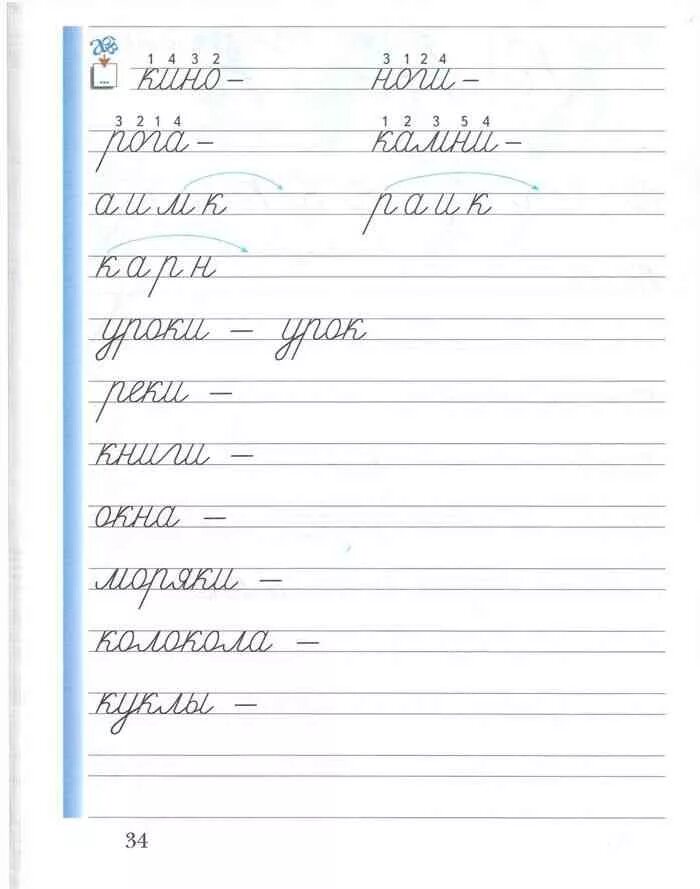 1 4 3 2 3 1 2 4
кино – ноги –
3 2 1 4 1 2 3 5 4
рога – камни –
а и м к р а и к
к а р н
уроки – урок
реки –
книги –
окна –
моряки –
колокола –
куклы –
34